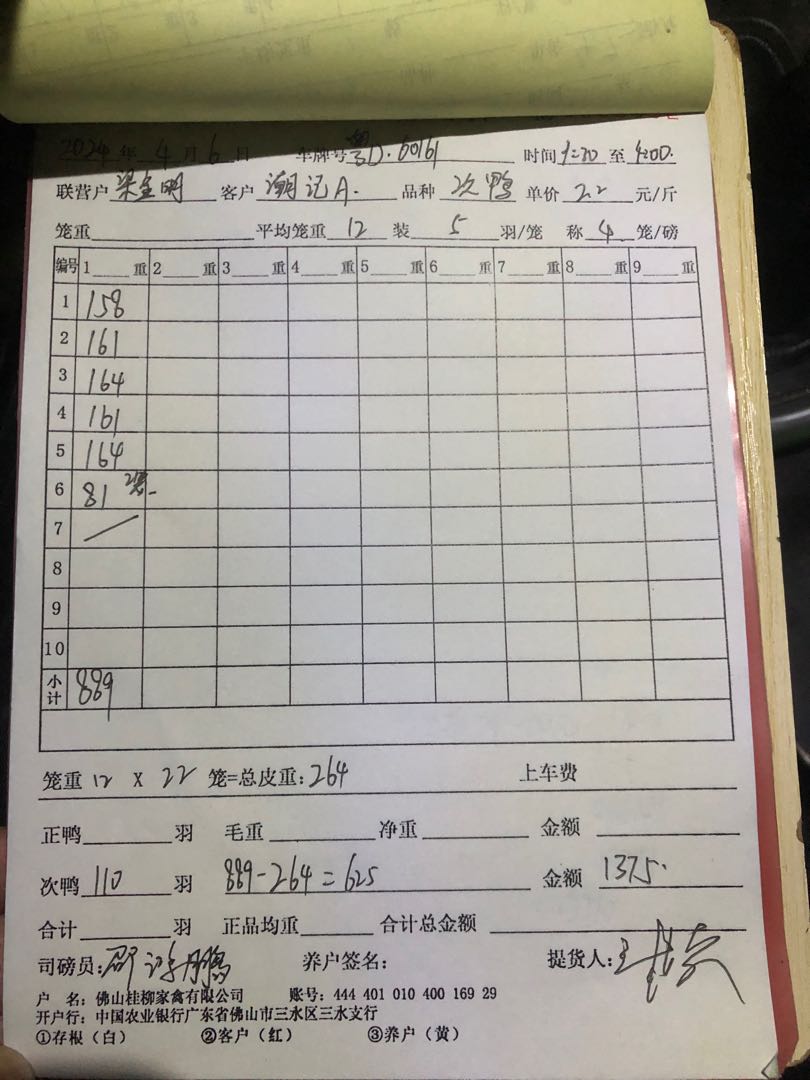 2024 年 4 月 6 日 车牌号 粤D.60161 时间 1:30 至 4:00.
联营户 梁金明 客户 潮记A. 品种 次鸭 单价 2.2 元/斤
笼重 平均笼重 12 装 5 羽/笼 称 4 笼/磅
编号 1 重 2 重 3 重 4 重 5 重 6 重 7 重 8 重 9 重
1 158
2 161
3 164
4 161
5 164
6 81 2笼
7
8
9
10
小计 889
笼重 12 X 22 笼=总皮重: 264 上车费
正鸭 羽 毛重 净重 金额
次鸭 110 羽 889-264=625 金额 1375.
合计 羽 正品均重 合计总金额
司磅员: 养户签名: 提货人: 王
户 名: 佛山桂柳家禽有限公司 账号: 444 401 010 400 169 29
开户行: 中国农业银行广东省佛山市三水区三水支行
①存根(白) ②客户(红) ③养户(黄)